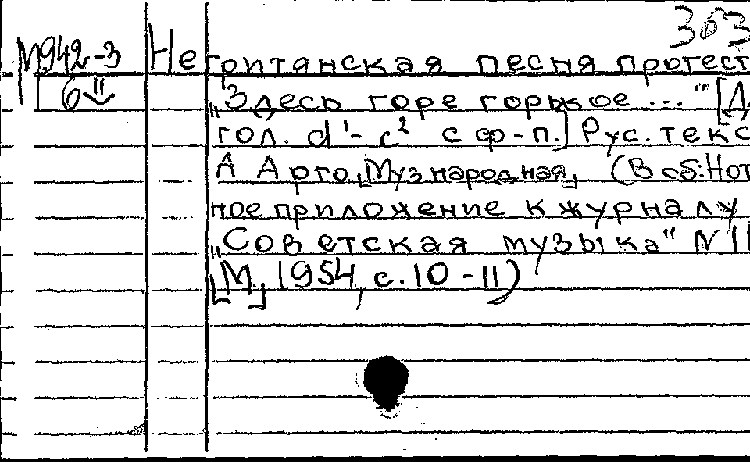 303
М942-3 Негритянская песня протест
6 "Здесь горе горькое..." [Д
гол. d¹-c² с ф-п.] Рус. текс
А Арго, [Муз народная], (В сб: Нот
ное приложение к журналу
"Советская музыка" N 11
[М], 1954, с. 10-11)